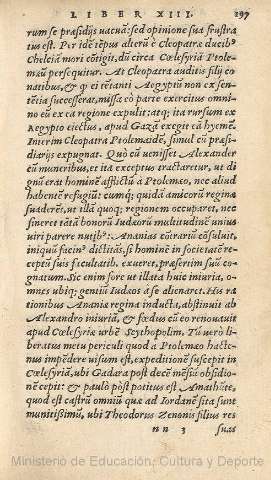 LIBER XIII. 197
rum se præsidijs vacuã: sed opinione sua frustra
tus est. Per idẽ tẽpus alterũ è Cleopatræ ducib⁹
Chelciã mori cõtigit, dũ circa Cœlesyriã Ptole-
mæũ persequitur. At Cleopatra auditis filij co
natibus, & ꝙ ei tẽtanti Aegyptũ non ex sen-
tẽtia successerat, missa eò parte exercitus omni-
no eũ ex ea regione expulit: atq; ita rursum ex
Aegypto eiectus, apud Gazã exegit eã hyemẽ.
Interim Cleopatra Ptolemaidẽ, simul cũ præsi-
diarijs expugnat. Quò cũ venisset Alexander
cũ muneribus, et ita exceptus tractaretur, ut di
gnũ erat hominẽ afflictũ a Ptolemæo, nec aliud
habentẽ refugiũ: cumq; quidã amicorũ reginæ
suaderẽt, ut illã quoq; regionem occuparet, nec
sineret tãtã bonorũ Iudæorũ multitudinẽ unius
viri parere nutib⁹: Ananias cõtrariũ cõsuluit,
iniquũ facin⁹ dictitãs, si hominẽ in societatẽ re-
ceptũ suis facultatib. exueret, præsertim suũ co-
gnatum. Sic enim fore ut illata huic iniuria, o-
mnes ubiq; gentiũ Iudæos à se alienaret. His ra
tionibus Ananiæ regina inducta, abstinuit ab
Alexandro iniuriã, & fœdus cũ eo renouauit
apud Cœlesyriæ urbẽ Scythopolim. Tũ verò li-
beratus metu periculi quod à Ptolemæo hacte-
nus impẽdere visum est, expeditionẽ suscepit in
Cœlesyriã, ubi Gadara post decẽ mẽsiũ obsidio-
nẽ cepit: & paulò pòst potitus est Amathũte,
quod est castrũ omniũ quæ ad Iordanẽ sita sunt
munitißimũ, ubi Theodorus Zenonis filius res
nn 3 suas
Ministerio de Educación, Cultura y Deporte